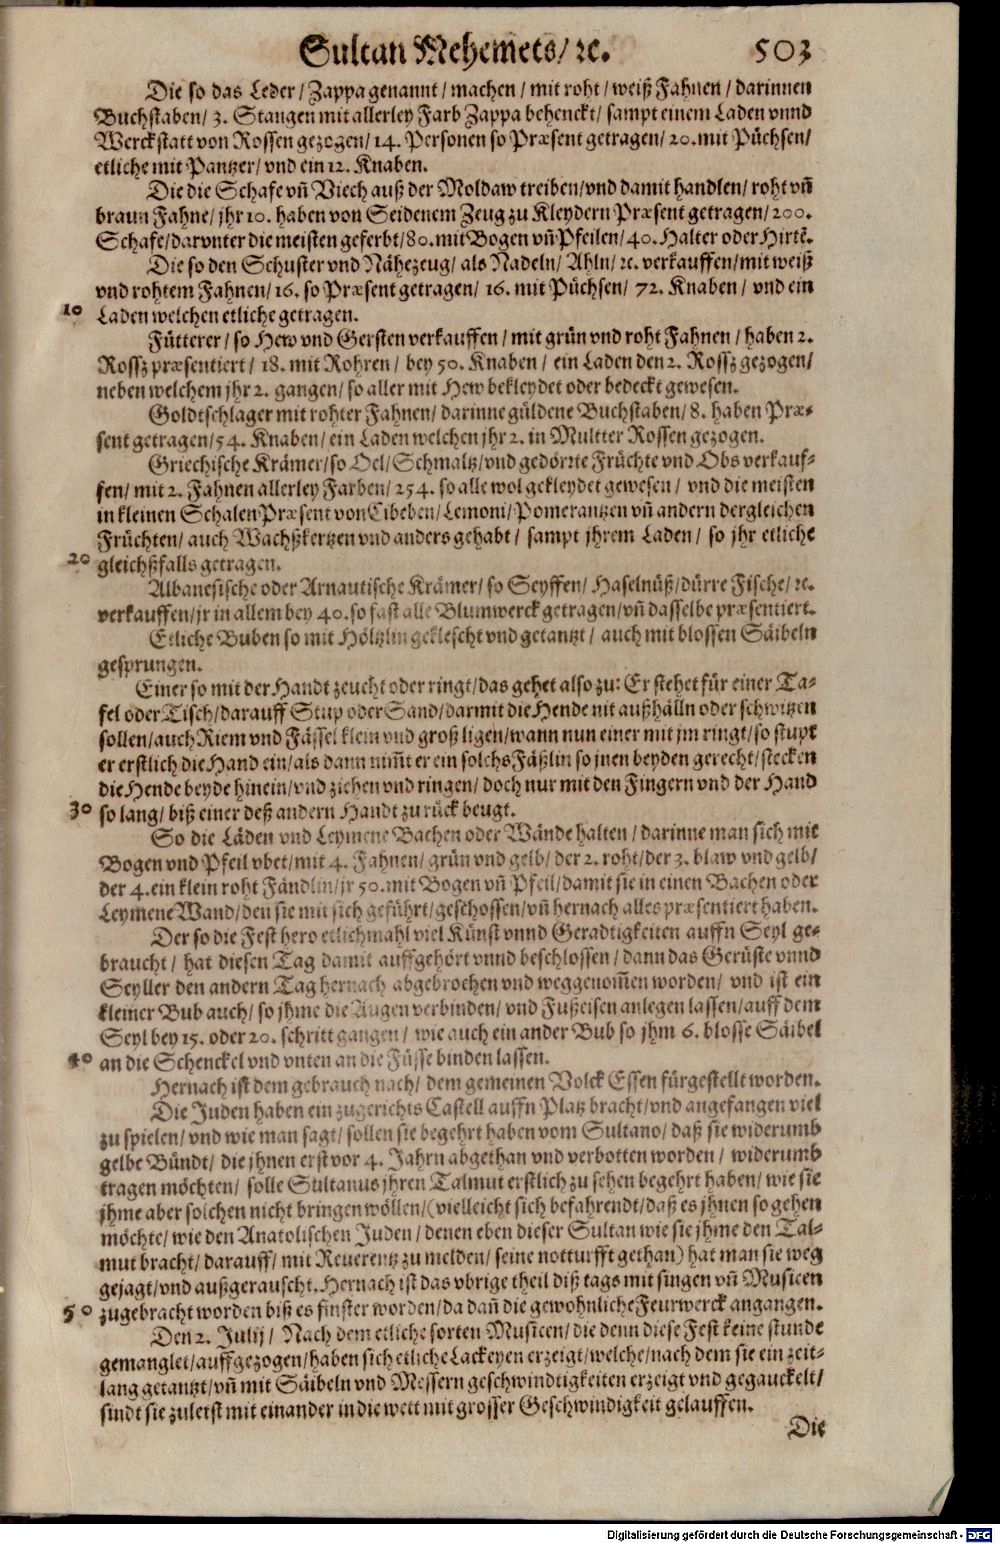 Sultan Mehemets/ ꝛc. 503
Die so das Leder/ Zappa genannt/ machen/ mit roht/ weiß Fahnen/ darinnen
Buchstaben/ 3. Stangen mit allerley Farb Zappa behenckt/ sampt einem Laden vnnd
Werckstatt von Rossen gezogen/ 14. Personen so Præsent getragen/ 20. mit Püchsen/
etliche mit Pantzer/ vnd ein 12. Knaben.
Die die Schafe vñ Viech auß der Moldaw treiben/ vnd damit handlen/ roht vñ
braun Fahne/ jhr 10. haben von Seidenem Zeug zu Kleydern Præsent getragen/ 200.
Schafe/ darvnter die meisten geferbt/ 80. mit Bogen vñ Pfeilen/ 40. Halter oder Hirtẽ.
Die so den Schuster vnd Nähezeug/ als Nadeln/ Ahln/ ꝛc. verkauffen/ mit weiß
vnd rohtem Fahnen/ 16. so Præsent getragen/ 16. mit Püchsen/ 72. Knaben/ vnd ein
10 Laden welchen etliche getragen.
Fütterer/ so Hew vnd Gersten verkauffen/ mit grün vnd roht Fahnen/ haben 2.
Rossz præsentiert/ 18. mit Rohren/ bey 50. Knaben/ ein Laden den 2. Rossz gezogen/
neben welchem jhr 2. gangen/ so aller mit Hew bekleydet oder bedeckt gewesen.
Goldtschlager mit rohter Fahnen/ darinne güldene Buchstaben/ 8. haben Præ-
sent getragen/ 54. Knaben/ ein Laden welchen jhr 2. in Multter Rossen gezogen.
Griechische Krämer/ so Oel/ Schmaltz/ vnd gedörrte Früchte vnd Obs verkauf-
fen/ mit 2. Fahnen allerley Farben/ 254. so alle wol gekleydet gewesen/ vnd die meisten
in kleinen Schalen Præsent von Cibeben/ Lemoni/ Pomerantzen vñ andern dergleichen
Früchten/ auch Wachßkertzen vnd anders gehabt/ sampt jhrem Laden/ so jhr etliche
20 gleichßfalls getragen.
Albanesische oder Arnautische Krämer/ so Seyffen/ Haselnüß/ dürre Fische/ ꝛc.
verkauffen/ jr in allem bey 40. so fast alle Blumwerck getragen/ vñ dasselbe præsentiert.
Etliche Buben so mit Höltzlin geklescht vnd getantzt/ auch mit blossen Säibeln
gesprungen.
Einer so mit der Handt zeucht oder ringt/ das gehet also zu: Er stehet für einer Ta-
fel oder Tisch/ darauff Stup oder Sand/ darmit die Hende nit außhälln oder schwitzen
sollen/ auch Riem vnd Fässel klein vnd groß ligen/ wann nun einer mit jm ringt/ so stupt
er erstlich die Hand ein/ als dann nim̃t er ein solchs Fäßlin so jnen beyden gerecht/ stecken
die Hende beyde hinein/ vnd ziehen vnd ringen/ doch nur mit den Fingern vnd der Hand
30 so lang/ biß einer deß andern Handt zu rück beugt.
So die Läden vnd Leymene Bachen oder Wände halten/ darinne man sich mit
Bogen vnd Pfeil vbet/ mit 4. Fahnen/ grün vnd gelb/ der 2. roht/ der 3. blaw vnd gelb/
der 4. ein klein roht Fändlin/ jr 50. mit Bogen vñ Pfeil/ damit sie in einen Bachen oder
Leymene Wand/ den sie mit sich geführt/ geschossen/ vñ hernach alles præsentiert haben.
Der so die Fest hero etlichmahl viel Künst vnnd Geradtigkeiten auffn Seyl ge-
braucht/ hat diesen Tag damit auffgehört vnnd beschlossen/ dann das Gerüste vnnd
Seyller den andern Tag hernach abgebrochen vnd weggenom̃en worden/ vnd ist ein
kleiner Bub auch/ so jhme die Augen verbinden/ vnd Fußeisen anlegen lassen/ auff dem
Seyl bey 15. oder 20. schritt gangen/ wie auch ein ander Bub so jhm 6. blosse Säibel
40 an die Schenckel vnd vnten an die Füsse binden lassen.
Hernach ist dem gebrauch nach/ dem gemeinen Volck Essen fürgestellt worden.
Die Juden haben ein zugerichts Castell auffn Platz bracht/ vnd angefangen viel
zu spielen/ vnd wie man sagt/ sollen sie begehrt haben vom Sultano/ daß sie widerumb
gelbe Bündt/ die jhnen erst vor 4. Jahrn abgethan vnd verbotten worden/ widerumb
tragen möchten/ solle Sultanus jhren Talmut erstlich zu sehen begehrt haben/ wie sie
jhme aber solchen nicht bringen wöllen/ (vielleicht sich befahrendt/ daß es jhnen so gehen
möchte/ wie den Anatolischen Juden/ denen eben dieser Sultan wie sie jhme den Tal-
mut bracht/ darauff/ mit Reuerentz zu melden/ seine notturfft gethan) hat man sie weg
gejagt/ vnd außgerauscht. Hernach ist das vbrige theil diß tags mit singen vñ Musicen
50 zugebracht worden biß es finster worden/ da dañ die gewohnliche Feurwerck angangen.
Den 2. Julij/ Nach dem etliche sorten Musicen/ die denn diese Fest keine stunde
gemanglet/ auffgezogen/ haben sich etliche Lackeyen erzeigt/ welche/ nach dem sie ein zeit-
lang getantzt/ vñ mit Säibeln vnd Messern geschwindtigkeiten erzeigt vnd gegauckelt/
sindt sie zuletst mit einander in die wett mit grosser Geschwindigkeit gelauffen.
Die
Digitalisierung gefördert durch die Deutsche Forschungsgemeinschaft - DFG